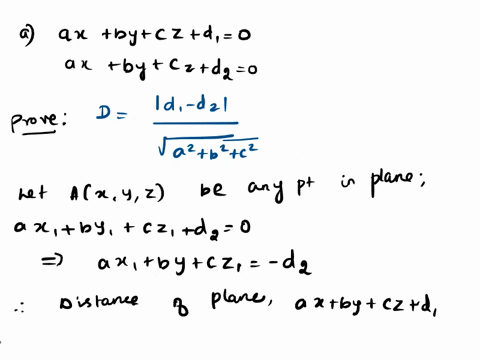 a) ax + by + cz + d₁ = 0
ax + by + cz + d₂ = 0
Prove: D = |d₁ - d₂| / √a² + b² + c²
Let A(x, y, z) be any pt in plane;
ax₁ + by₁ + cz₁ + d₂ = 0
⇒ ax₁ + by + cz₁ = -d₂
∴ Distance of plane, ax + by + cz + d₁